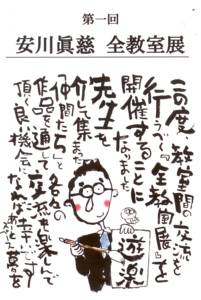 第一回
安川眞慈 全教室展
この度、教室間の交流を
行うべく『全教室展』を
開催することに
なりました
先生を
介して集まった
「仲間たち」と
各々の
作品を通して交流を楽しんで
頂く良い機会に
なれば幸いです
遊楽